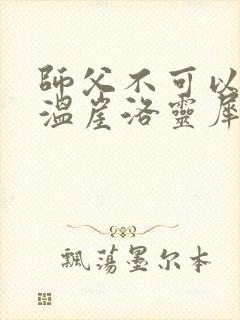 師父不可以
溫崖洛靈犀
飄蕩墨尔本